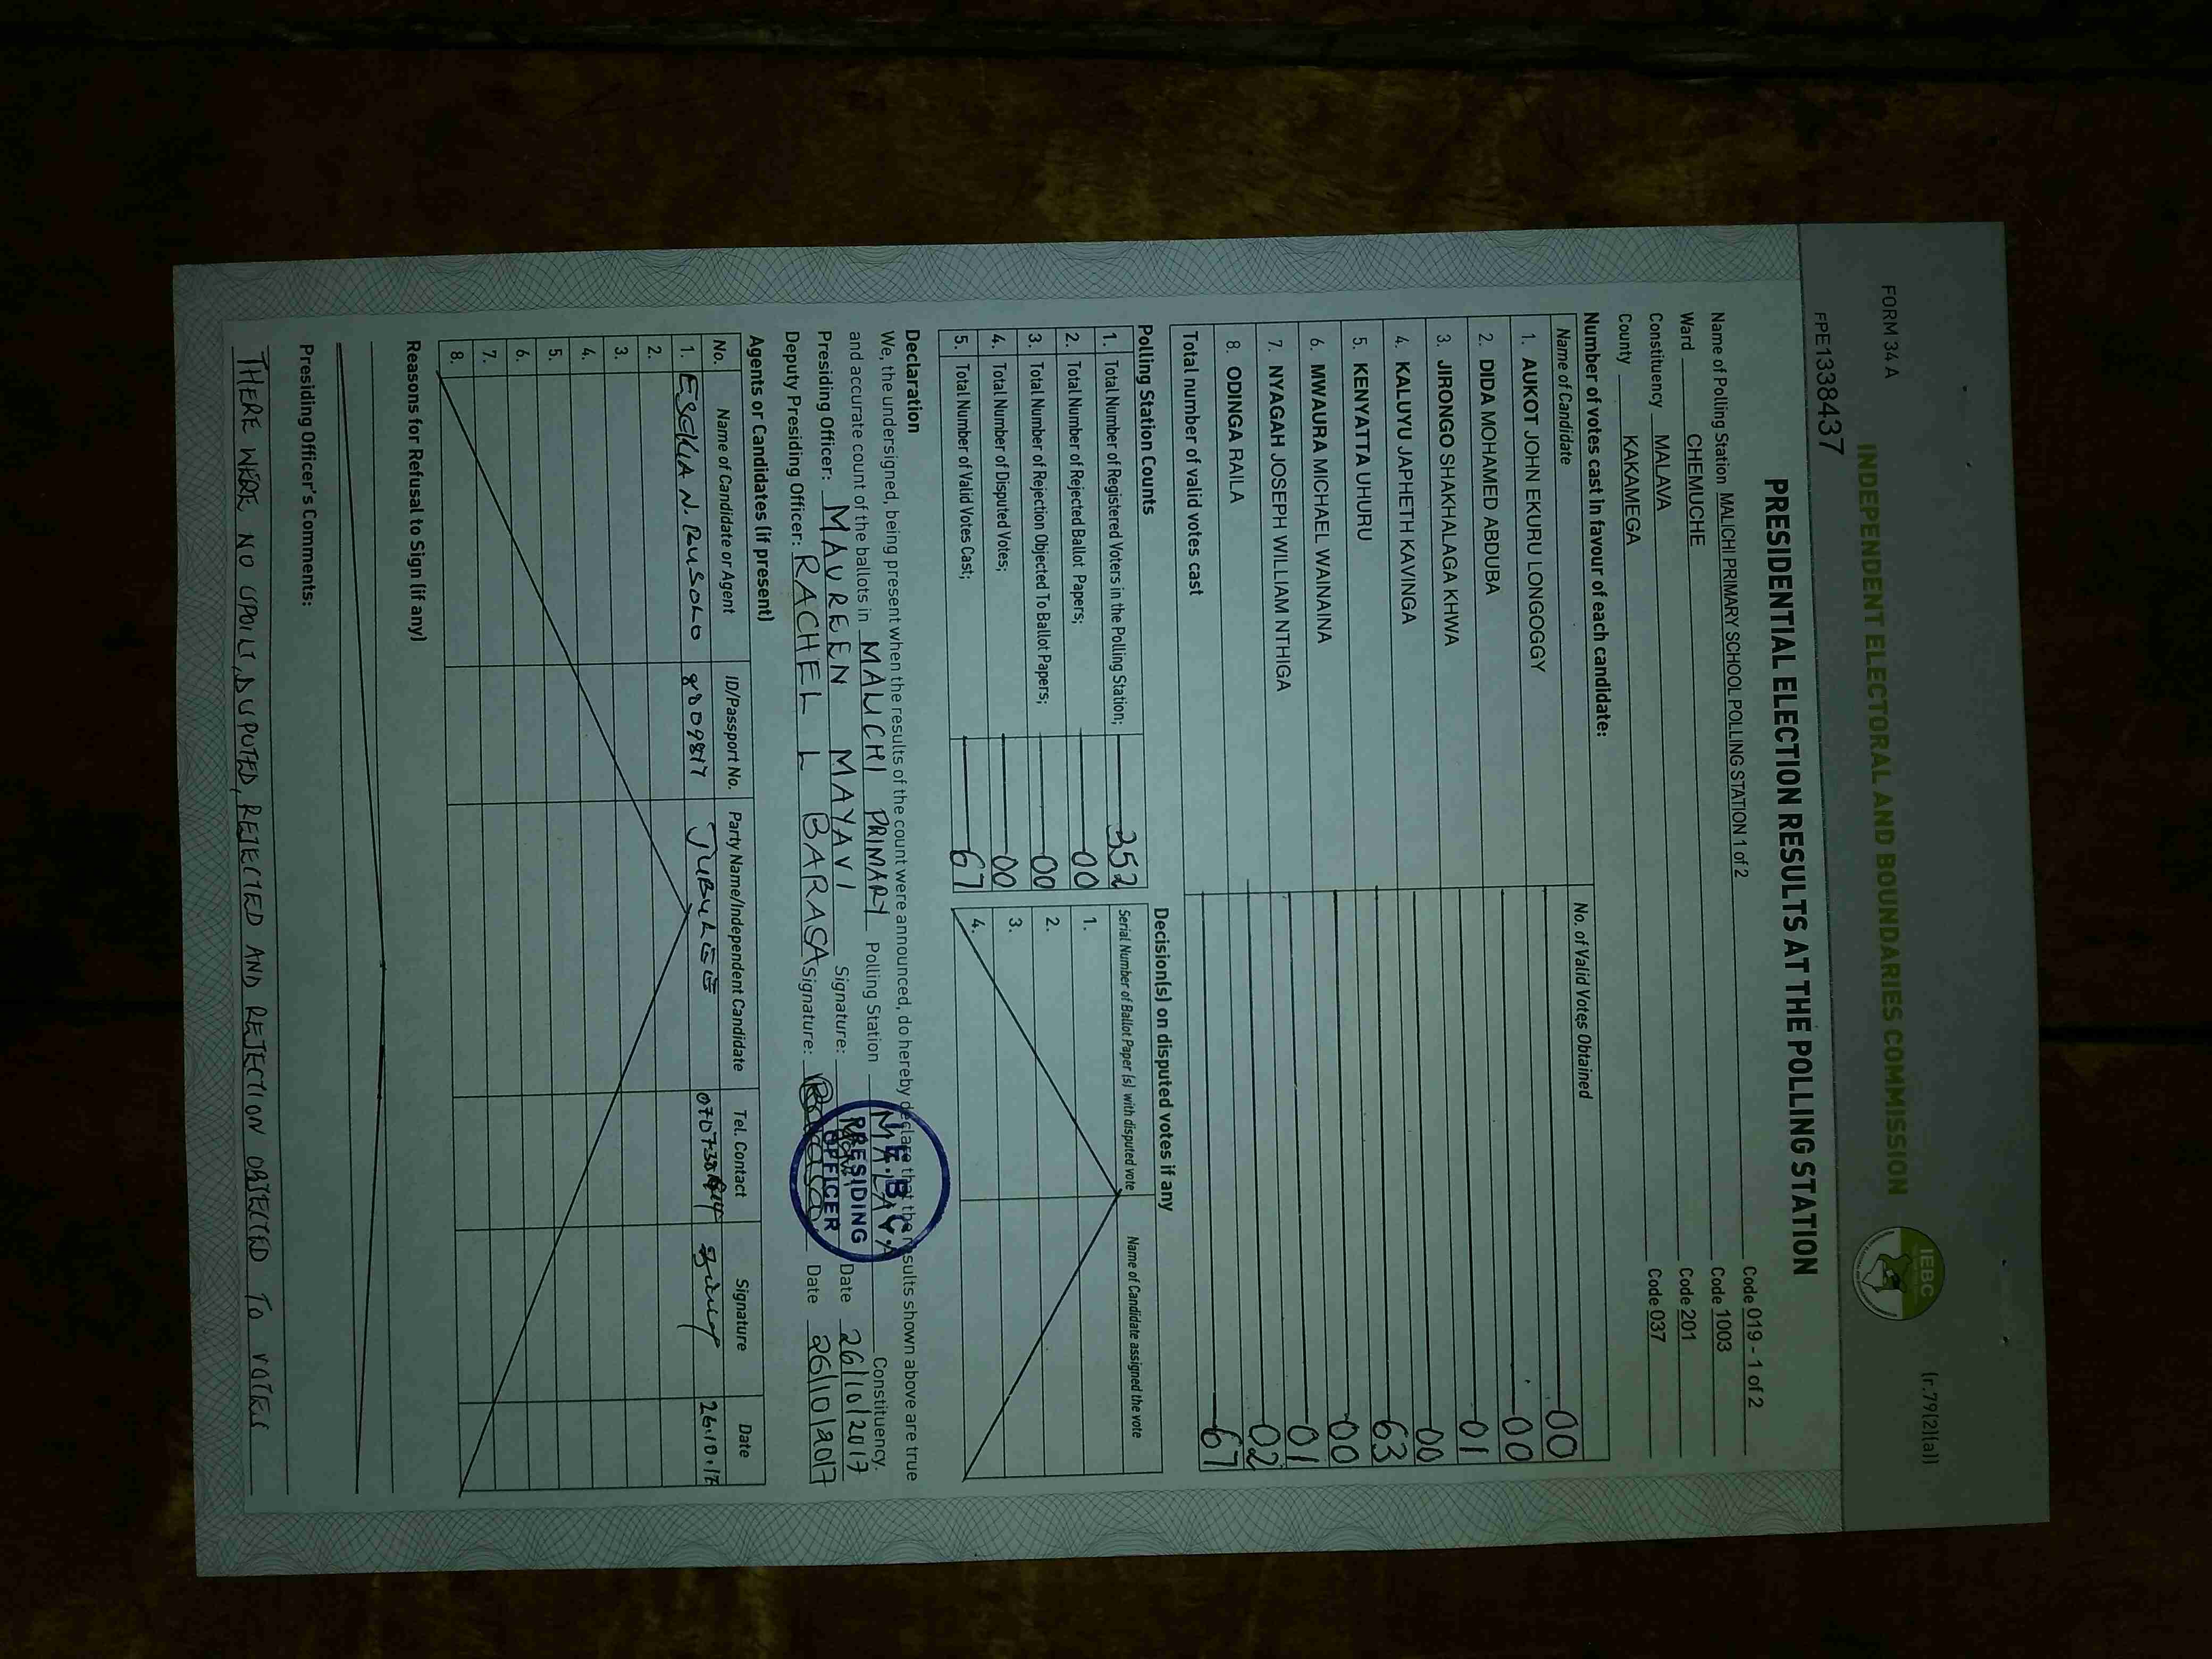 FORM 34 A
(r.79(2)(a))
INDEPENDENT ELECTORAL AND BOUNDARIES COMMISSION
IEBC
FPE1338437
PRESIDENTIAL ELECTION RESULTS AT THE POLLING STATION
Name of Polling Station MALICHI PRIMARY SCHOOL POLLING STATION 1 of 2 Code 019 - 1 of 2
Ward CHEMUCHE Code 1003
Constituency MALAVA Code 201
County KAKAMEGA Code 037
Number of votes cast in favour of each candidate:
Name of Candidate No. of Valid Votes Obtained
1. AUKOT JOHN EKURU LONGOGGY 00
2. DIDA MOHAMED ABDUBA 00
3. JIRONGO SHAKHALAGA KHWA 01
4. KALUYU JAPHETH KAVINGA 00
5. KENYATTA UHURU 63
6. MWAURA MICHAEL WAINAINA 00
7. NYAGAH JOSEPH WILLIAM NTHIGA 01
8. ODINGA RAILA 02
Total number of valid votes cast 67
Polling Station Counts
1. Total Number of Registered Voters in the Polling Station; 352
2. Total Number of Rejected Ballot Papers; 00
3. Total Number of Rejection Objected To Ballot Papers; 00
4. Total Number of Disputed Votes; 00
5. Total Number of Valid Votes Cast; 67
Decision(s) on disputed votes if any
Serial Number of Ballot Paper (s) with disputed vote Name of Candidate assigned the vote
1.
2.
3.
4.
Declaration
We, the undersigned, being present when the results of the count were announced, do hereby declare that the results shown above are true
and accurate count of the ballots in MALICHI PRIMARY Polling Station MALAVA Constituency.
Presiding Officer: MAUREEN MAYAVI Signature: Date 26/10/2017
Deputy Presiding Officer: RACHEL L BARASA Signature: Date 26/10/2017
I.E.B.C
PRESIDING
OFFICER
Agents or Candidates (if present)
No. Name of Candidate or Agent ID/Passport No. Party Name/Independent Candidate Tel. Contact Signature Date
1. ESCKIA N. JUBULEE 26.10.17
2.
3.
4.
5.
6.
7.
8.
Reasons for Refusal to Sign (if any)
Presiding Officer's Comments:
THERE WERE NO SPOILT, DISPUTED, REJECTED AND REJECTION OBJECTED TO VOTES